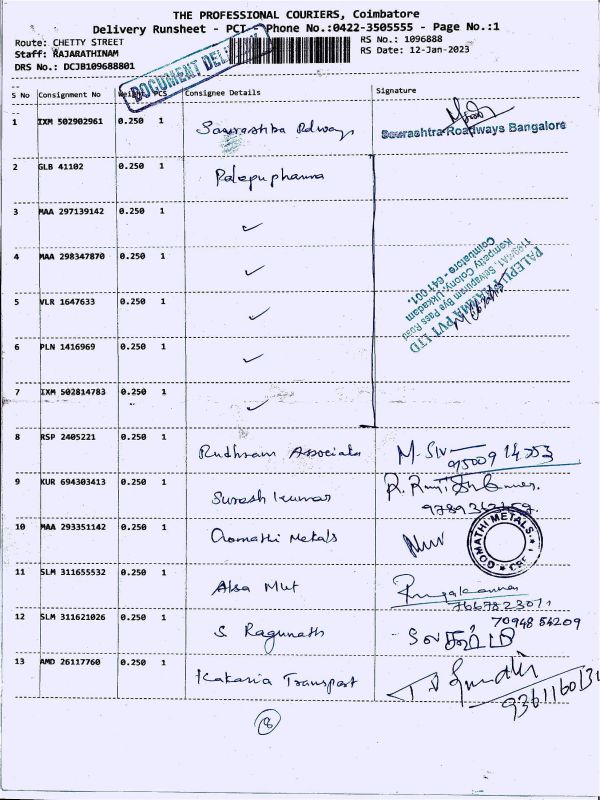 THE PROFESSIONAL COURIERS, Coimbatore
Delivery Runsheet - PCT - Phone No.:0422-3505555 - Page No.:1
Route: CHETTY STREET
RS No.: 1096888
Staff: RAJARATHINAM
RS Date: 12-Jan-2023
DRS No.: DCJB109688801
DOCUMENT DELIVERY
S No Consignment No Weight PCS Consignee Details Signature
1 IXM 502902961 0.250 1 Saurashtra Rdways
Saurashtra Roadways Bangalore
2 GLB 41102 0.250 1 Palepu pharma
3 MAA 297139142 0.250 1 ✓
4 MAA 298347870 0.250 1 ✓
PALEPU PHARMA PVT LTD
Coimbatore - 641 001.
5 VLR 1647633 0.250 1 ✓
6 PLN 1416969 0.250 1 ✓
7 IXM 502814783 0.250 1 ✓
8 RSP 2405221 0.250 1 Rudhram Associats M. Siv
9 KUR 694303413 0.250 1 Suresh kumar
10 MAA 293351142 0.250 1 Gomathi Metals
GOMATHI METALS
11 SLM 311655532 0.250 1
7667823071
12 SLM 311621026 0.250 1 S Ragunath
70948 54209
13 AMD 26117760 0.250 1 Kakaria Transport